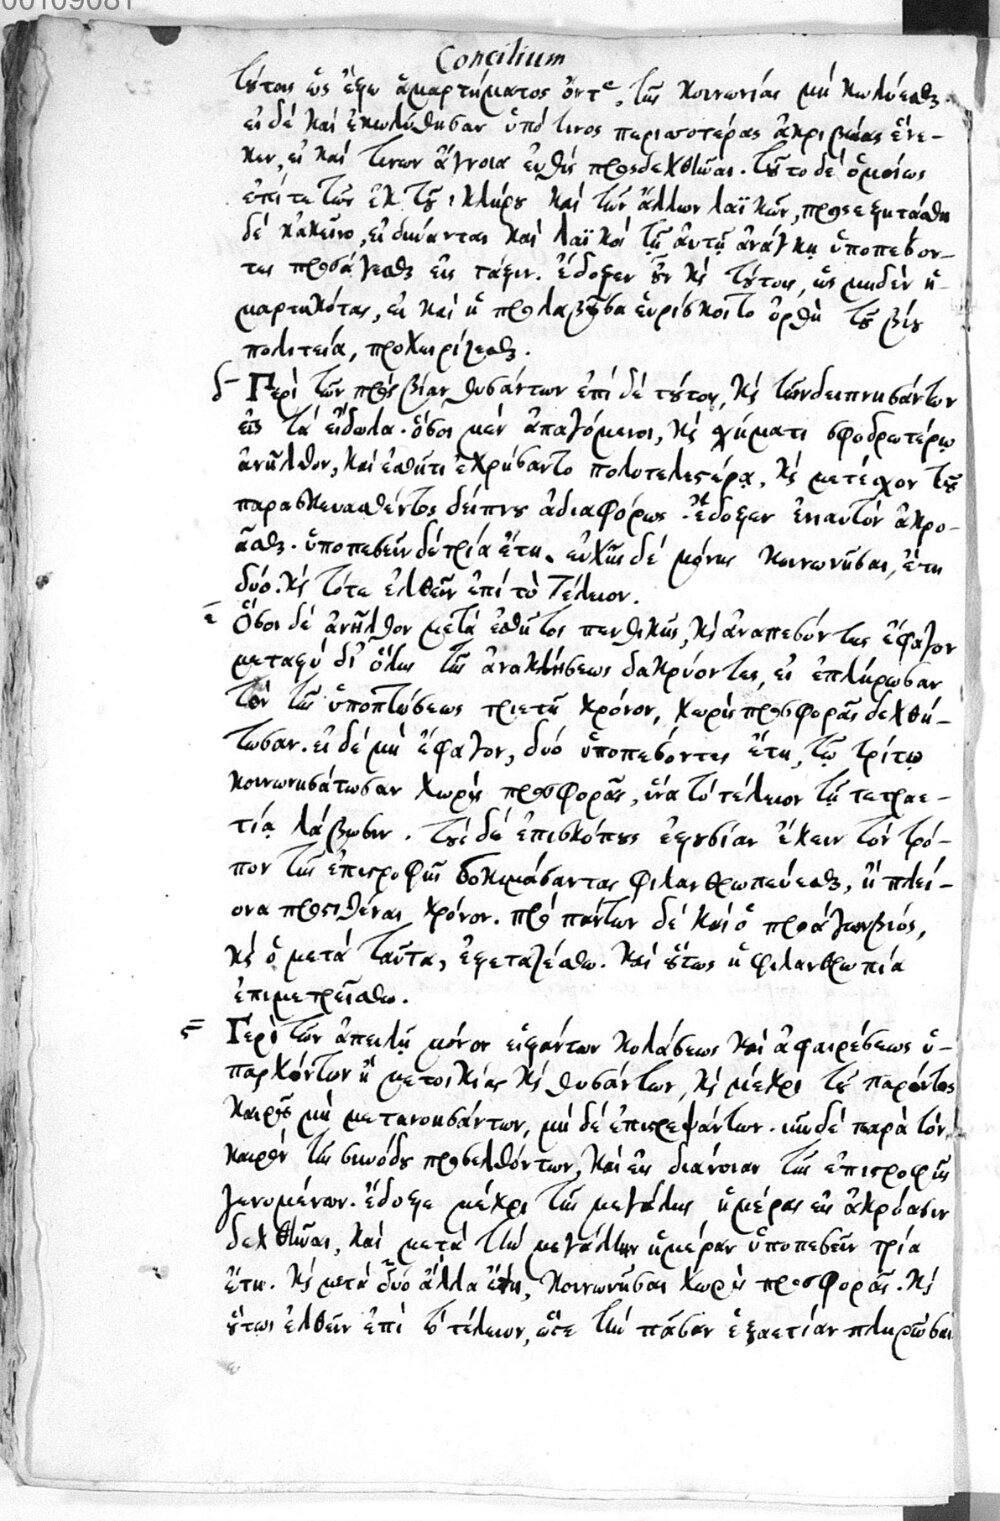 00109081
Concilium
τούτους ὡς ἔξω ἁμαρτήματος ὄντας, τῆς κοινωνίας μὴ κωλύεσθαι.
εἰ δὲ καὶ ἐκωλύθησαν ὑπό τινος περισσοτέρας ἀκριβείας ἕνε-
κεν, εἰ καὶ τινων ἀγνοία εὐθὺς προσδεχθῆναι. τοῦτο δὲ ὁμοίως
ἐπί τε τῶν ἐκ τοῦ κλήρου καὶ τῶν ἄλλων λαϊκῶν, προσεξητάσθη
δὲ κἀκεῖνο, εἰ δύνανται καὶ λαϊκοὶ τῇ αὐτῇ ἀνάγκῃ ὑποπεσόν-
τες προσάγεσθαι εἰς τάξιν. ἔδοξεν οὖν καὶ τούτους, ὡς μηδὲν ἡ-
μαρτηκότας, εἰ καὶ ἡ προλαβοῦσα εὑρίσκοιτο ὀρθὴ τοῦ βίου
πολιτεία, προχειρίζεσθαι.
δ Περὶ τῶν πρὸς βίαν θυσάντων ἐπὶ δὲ τούτοις, καὶ τῶν δειπνησάντων
εἰς τὰ εἴδωλα. ὅσοι μὲν ἀπαγόμενοι, καὶ σχήματι σφοδρωτέρῳ
ἀνῆλθον, καὶ ἐσθῆτι ἐχρήσαντο πολυτελεστέρᾳ, καὶ μετέσχον τοῦ
παρασκευασθέντος δείπνου ἀδιαφόρως. ἔδοξεν ἐνιαυτὸν ἀκρο-
ᾶσθαι. ὑποπεσεῖν δὲ τρία ἔτη. εὐχῆς δὲ μόνης κοινωνῆσαι, ἔτη
δύο. καὶ τότε ἐλθεῖν ἐπὶ τὸ τέλειον.
ε Ὅσοι δὲ ἀνῆλθον μετὰ ἐσθῆτος πενθικῆς, καὶ ἀναπεσόντες ἔφαγον
μεταξὺ δι' ὅλης τῆς ἀνακλήσεως δακρύοντες, εἰ ἐπλήρωσαν
τὸν τῆς ὑποπτώσεως τριετῆ χρόνον, χωρὶς προσφορᾶς δεχθή-
τωσαν. εἰ δὲ μὴ ἔφαγον, δύο ὑποπεσόντες ἔτη, τῷ τρίτῳ
κοινωνησάτωσαν χωρὶς προσφορᾶς, ἵνα τὸ τέλειον τῇ τετραε-
τίᾳ λάβωσιν. τοὺς δὲ ἐπισκόπους ἐξουσίαν ἔχειν τὸν τρό-
πον τῆς ἐπιστροφῆς δοκιμάσαντας φιλανθρωπεύεσθαι, ἢ πλεί-
ονα προστιθέναι χρόνον. πρὸ πάντων δὲ καὶ ὁ προάγων βίος,
καὶ ὁ μετὰ ταῦτα, ἐξεταζέσθω. καὶ οὕτως ἡ φιλανθρωπία
ἐπιμετρείσθω.
ϛ Περὶ τῶν ἀπειλῇ μόνον εἰξάντων κολάσεως καὶ ἀφαιρέσεως ὑ-
παρχόντων ἢ μετοικίας καὶ θυσάντων, καὶ μέχρι τοῦ παρόντος
καιροῦ μὴ μετανοησάντων, μὴ δὲ ἐπιστρεψάντων. νῦν δὲ παρὰ τὸν
καιρὸν τῆς συνόδου προσελθόντων, καὶ εἰς διάνοιαν τῆς ἐπιστροφῆς
γενομένων. ἔδοξε μέχρι τῆς μεγάλης ἡμέρας εἰς ἀκρόασιν
δεχθῆναι, καὶ μετὰ τὴν μεγάλην ἡμέραν ὑποπεσεῖν τρία
ἔτη. καὶ μετὰ δύο ἄλλα ἔτη, κοινωνῆσαι χωρὶς προσφορᾶς. καὶ
οὕτως ἐλθεῖν ἐπὶ τὸ τέλειον, ὥστε τὴν πᾶσαν ἑξαετίαν πληρῶσαι